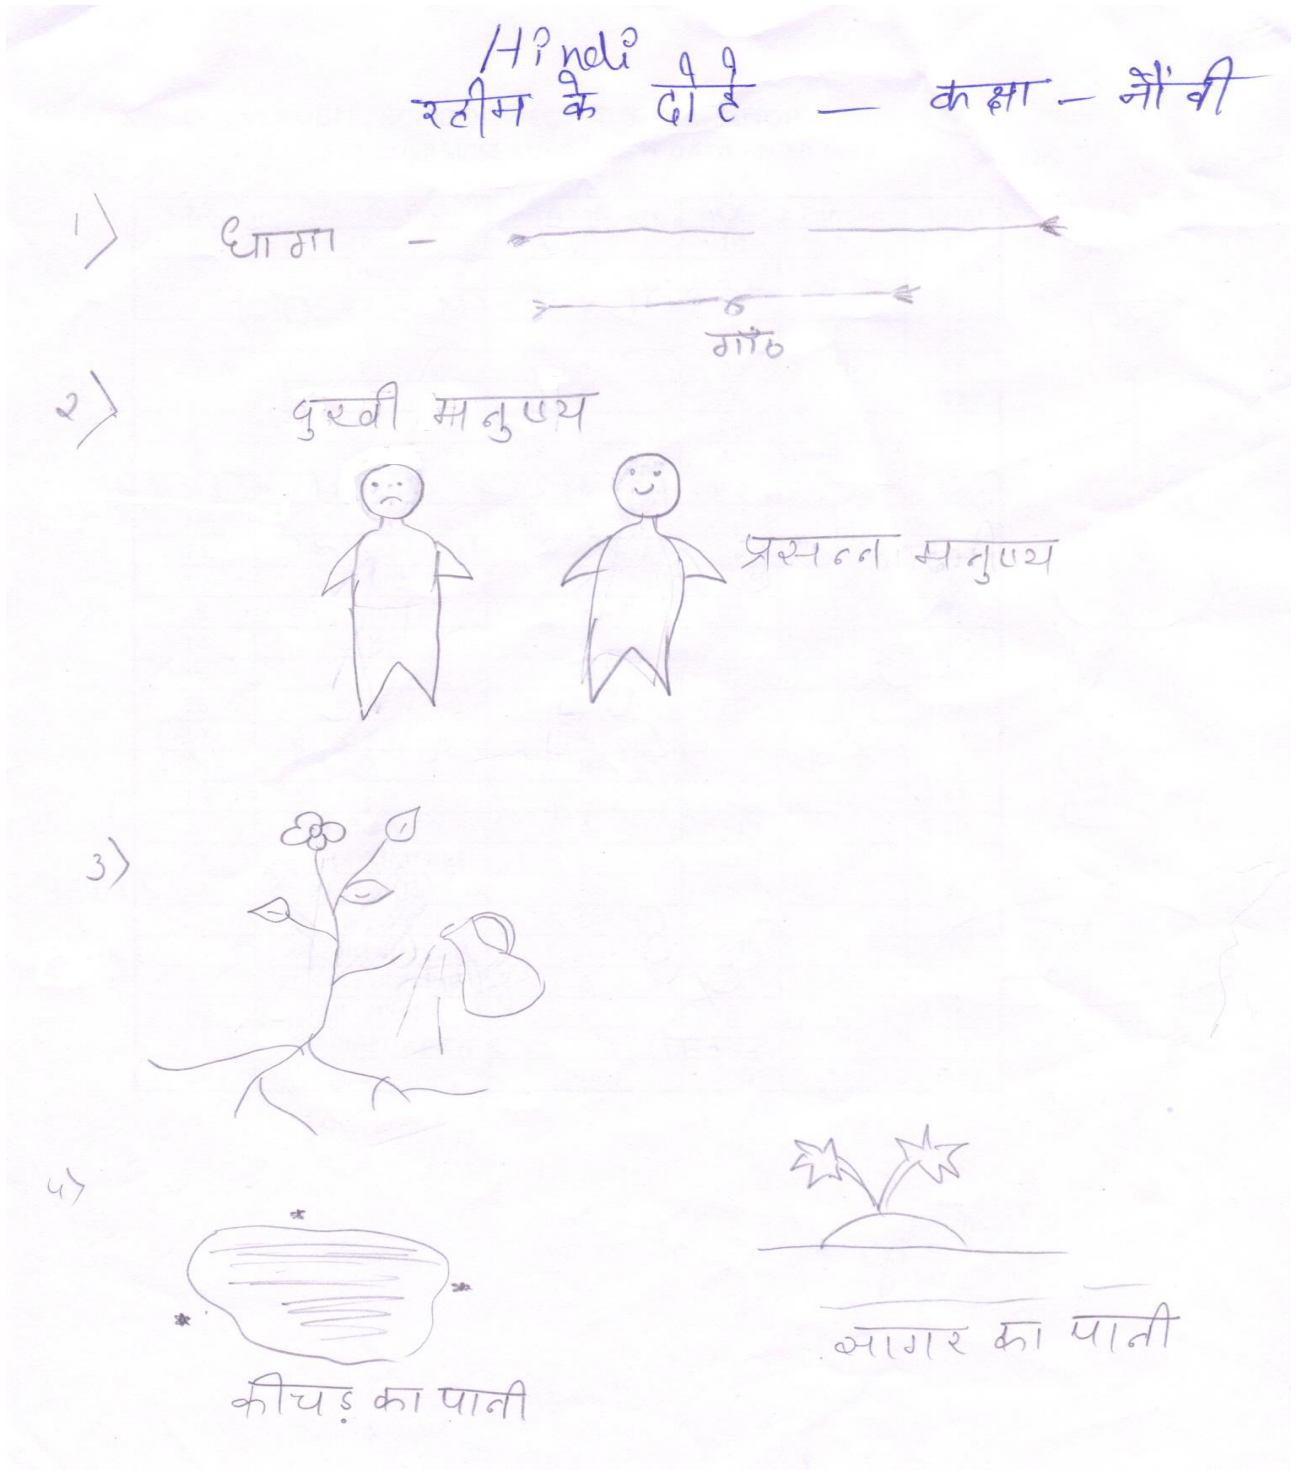 Hindi
रहीम के दोहे — कक्षा - नौंवी
1) धागा -
गाँठ
२) दुखी मनुष्य
प्रसन्न मनुष्य
3)
4)
सागर का पानी
कीचड़ का पानी